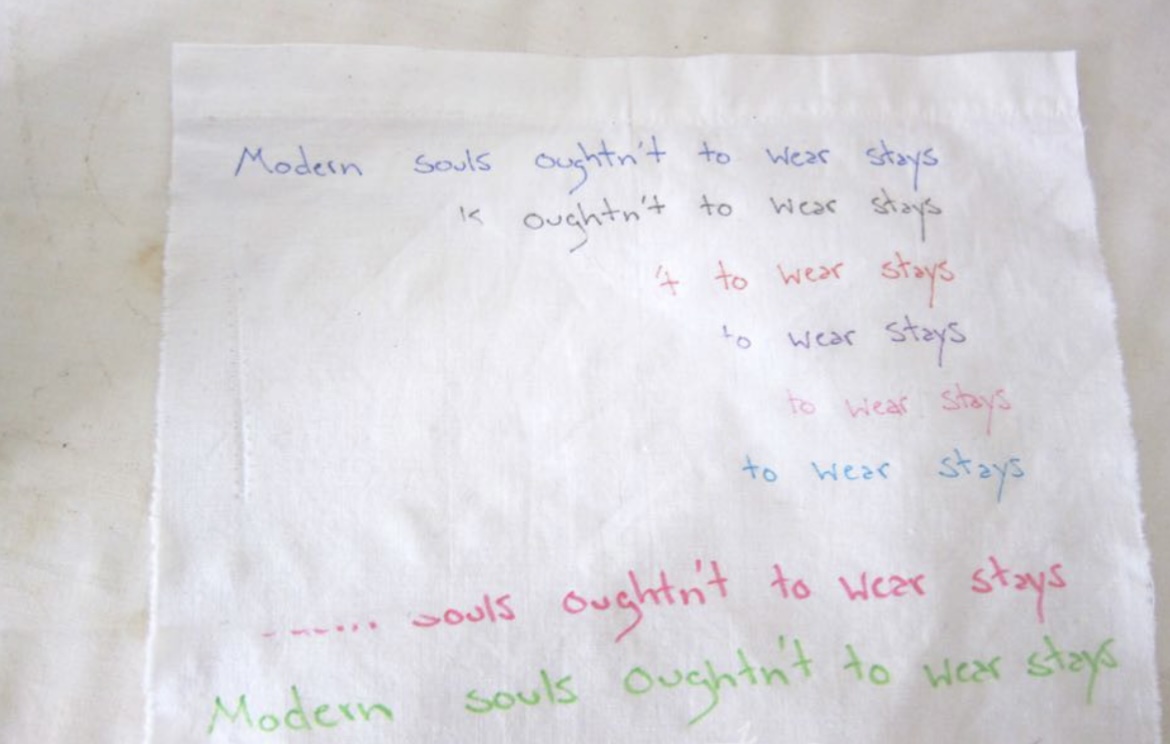 Modern souls oughtn't to wear stays
oughtn't to wear stays
't to wear stays
to wear stays
to wear stays
to wear stays
....... souls oughtn't to wear stays
Modern souls oughtn't to wear stays